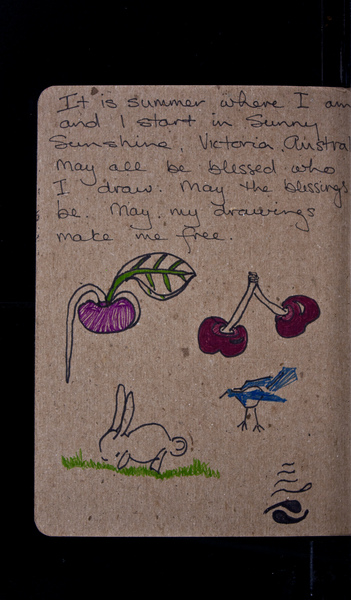 It is summer where I am
and I start in Sunny
Sunshine, Victoria, Austral
May all be blessed who
I draw. May the blessings
be. May my drawings
make me free.